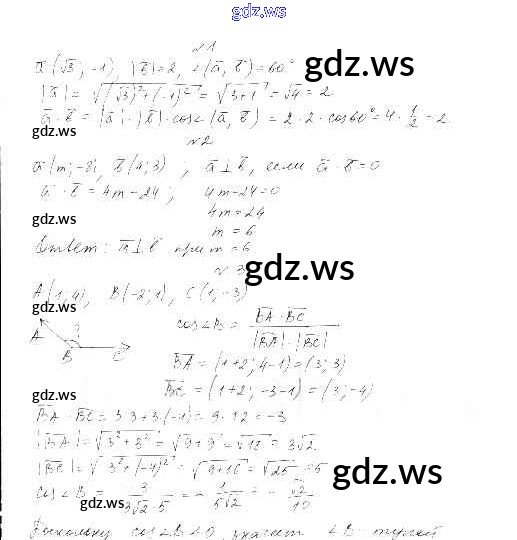 gdz.ws
№1
ā(√3; -1), |b̄|=2, ∠(ā, b̄)=60°
gdz.ws
|ā| = √((√3)²+(-1)²) = √(3+1) = √4 = 2
ā · b̄ = |ā|·|b̄|·cos∠(ā, b̄) = 2·2·cos60° = 4·1/2 = 2.
gdz.ws
№2
ā(m; -8), b̄(4; 3) ; ā⊥b̄, если ā·b̄=0
ā · b̄ = 4m-24 ; 4m-24=0
gdz.ws
4m=24
m = 6
Ответ: ā⊥b̄ при m=6
№3
gdz.ws
A(1,4), B(-2;1), C(1,-3)
gdz.ws
cos∠B = BA · BC / |BA|·|BC|
A B C ?
BA = (1+2; 4-1) = (3; 3)
BC = (1+2; -3-1) = (3; -4)
gdz.ws
BA · BC = 3·3+3·(-4) = 9-12 = -3
|BA| = √(3²+3²) = √(9+9) = √18 = 3√2.
|BC| = √(3²+(-4)²) = √(9+16) = √25 = 5
gdz.ws
cos∠B = - 3/(3√2·5) = - 1/(5√2) = - √2/10
gdz.ws
Поскольку cos∠B<0, значит ∠B - тупой